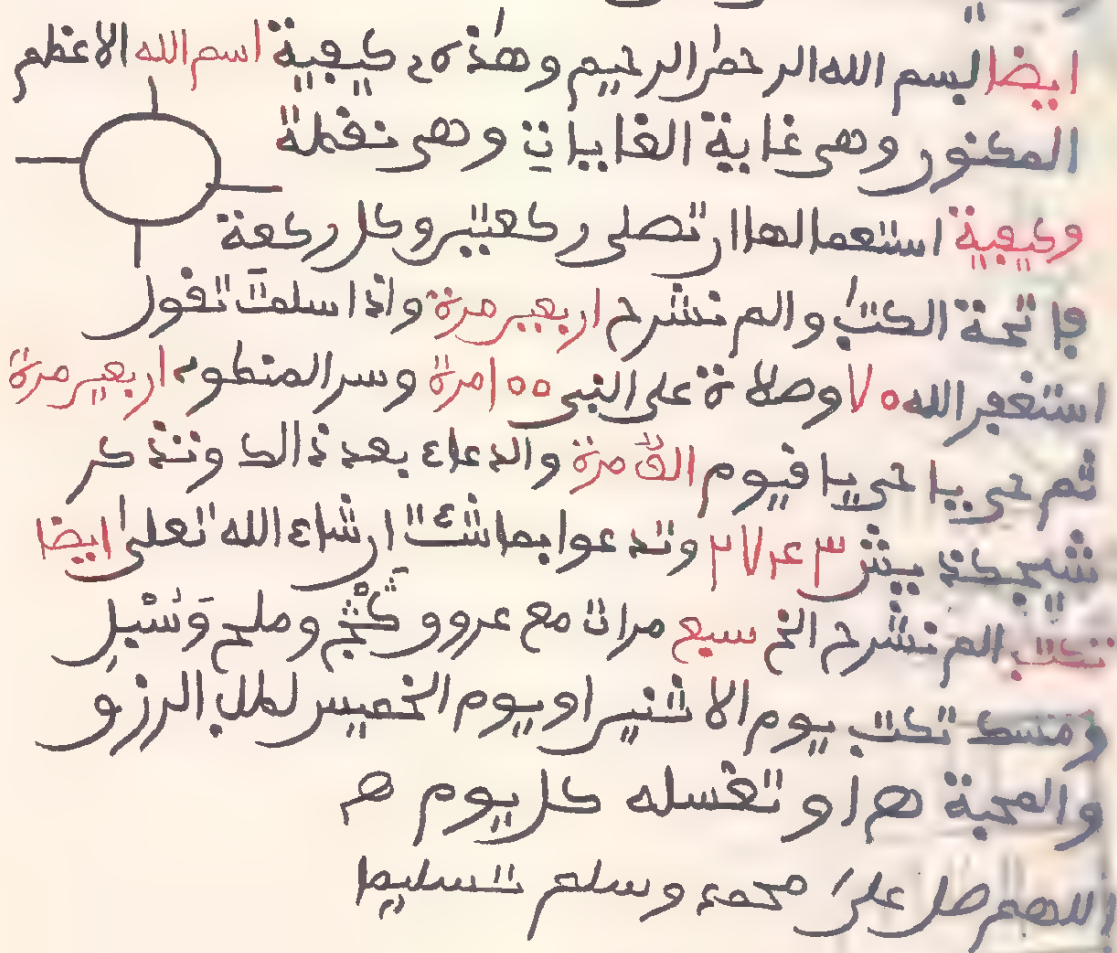 ايضا بسم الله الرحمن الرحيم وهذه كيفية اسم الله الاعظم
المكنون وهي غاية الغايات وهي نفطة
وكيفية استعمالها ان تصلى ركعتين وكل ركعة
فاتحة الكتب والم نشرح اربعين مرة واذا سلمت تفول
استغفر الله ٧٠ وصلاة على النبي ١٠٠ مرة وسر المنطوم اربعين مرة
ثم حي يا حي يا فيوم الف مرة والدعاء بعد ذالك وتذكر
وتدعوا بما شئت ان شاء الله تعلى ايضا
تكتب الم نشرح الخ سبع مرات مع وملح وسنبل
ومسك تكتب يوم الاثنين او يوم الخميس لطلب الرزق
والمحبة او تغسله كل يوم
اللهم صل على محمد وسلم تسليما